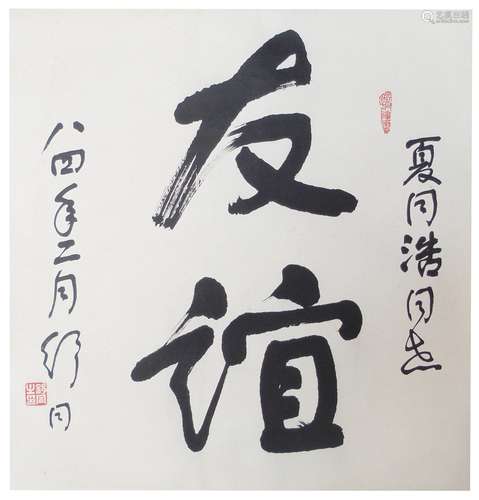 夏同浩同志
友
谊
八四年二月舒同